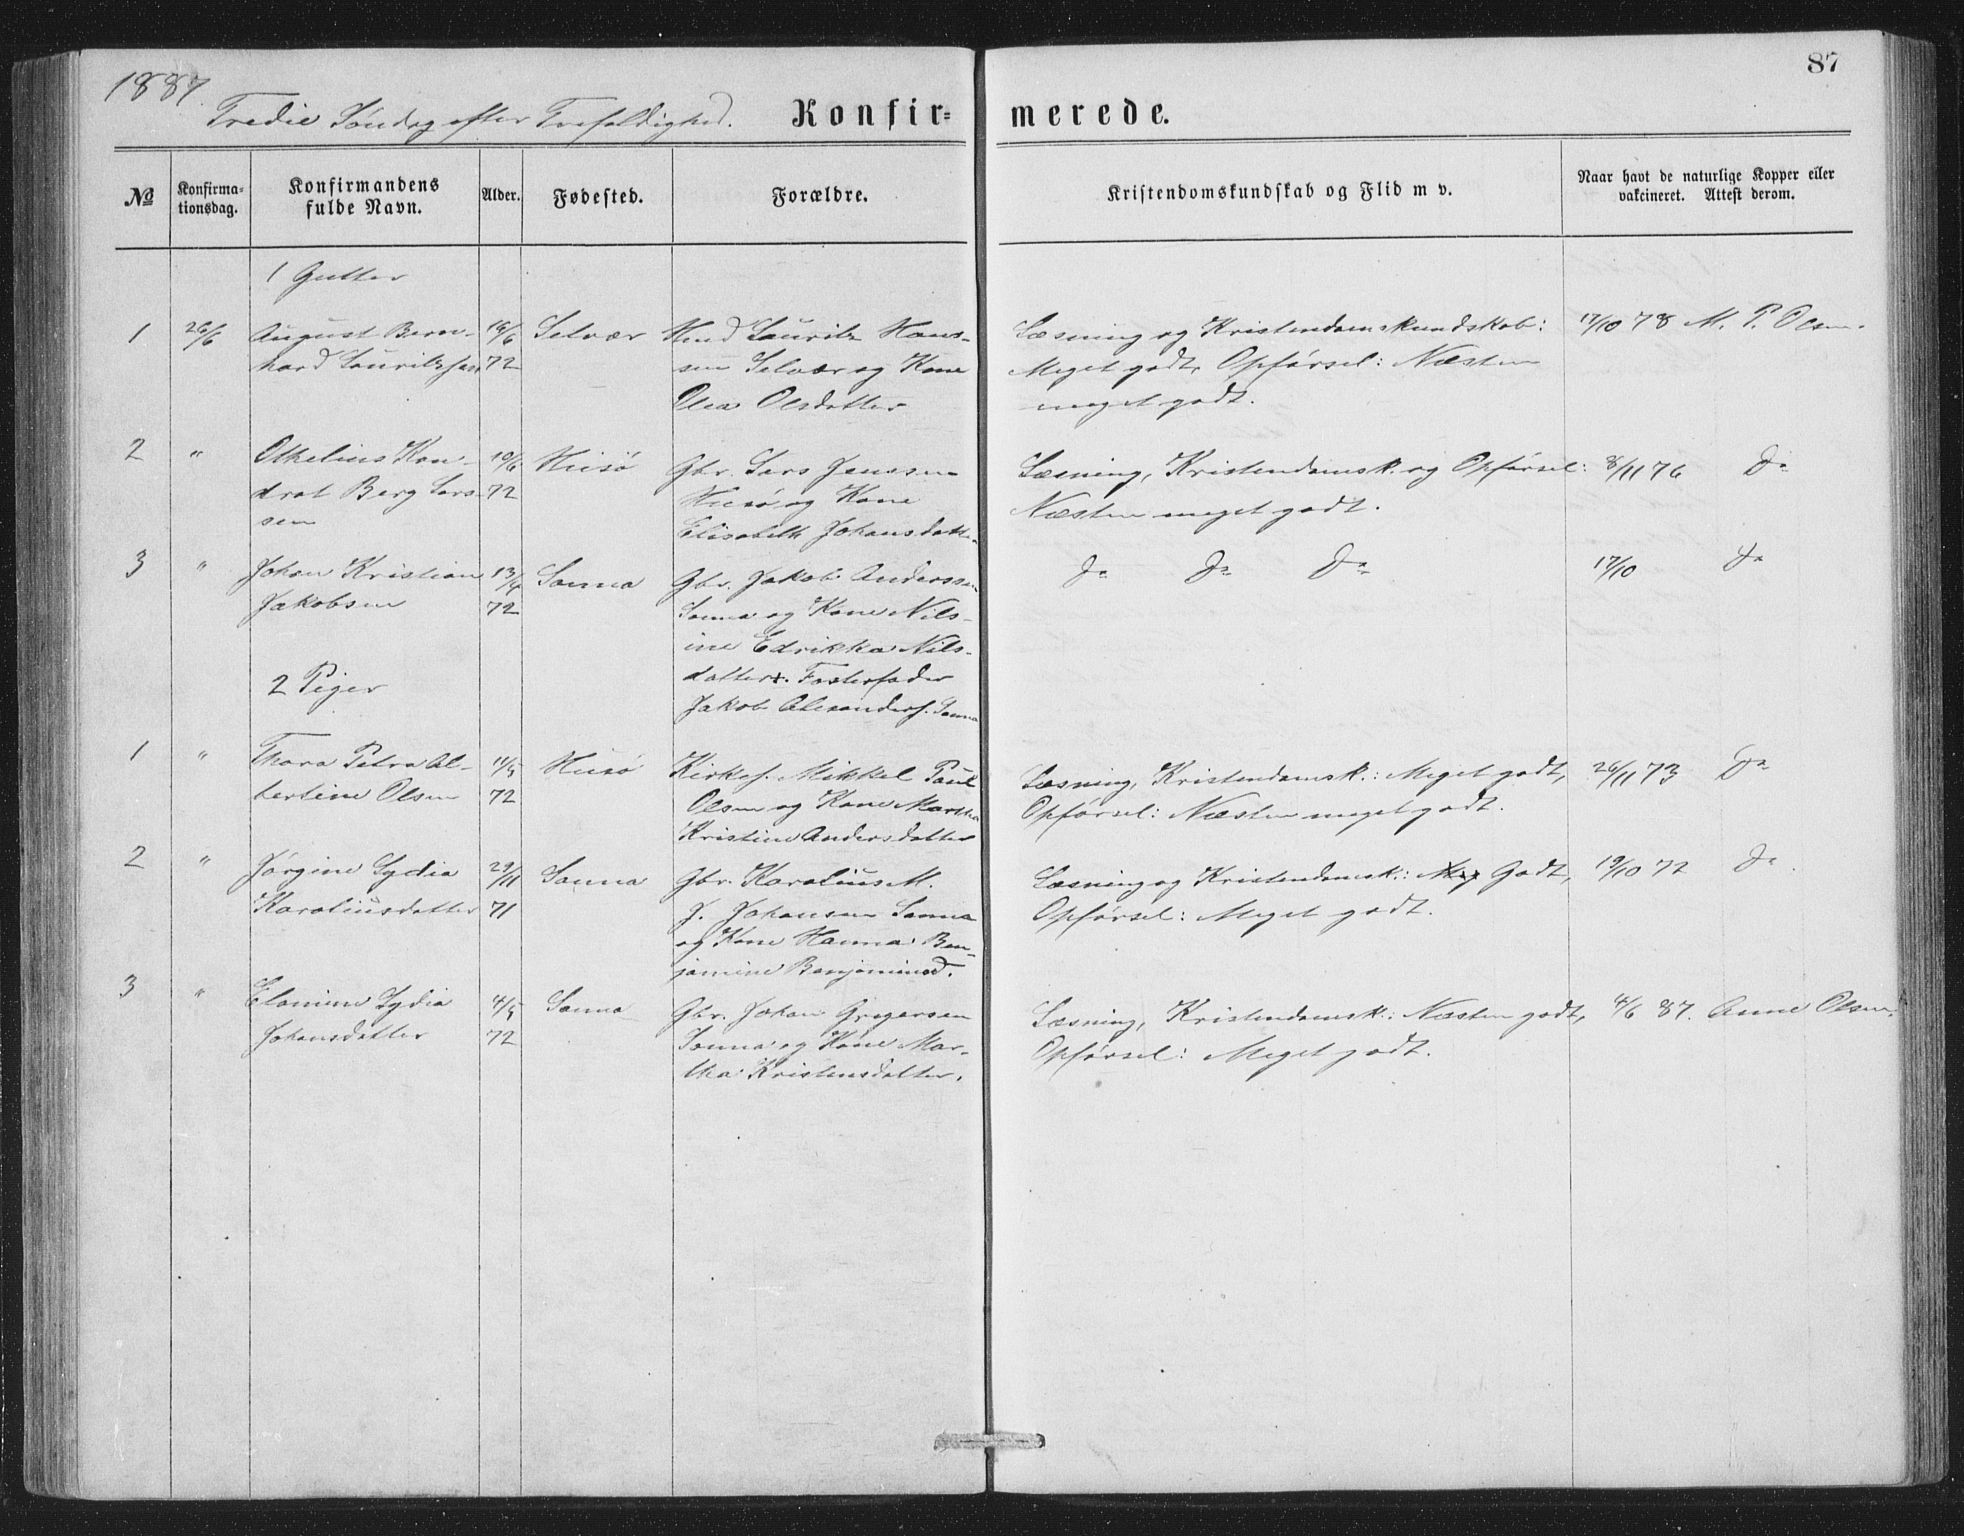 87
1887.
Tredie Søndag efter Trefoldighed.
Konfir=
merede.
No
Konfirma=
tionsdag.
Konfirmandens
fulde Navn.
Alder.
Fødested.
Forældre.
Kristendomskundskab og Flid m v.
Naar havt de naturlige Kopper eller
vakcineret. Attest derom.
1 Gutter
1 26/6 August Bern-
hard Lauritzsen
16/6
72
Selvær
Hmd Lauritz Hans-
sen Selvær og Kone
Olea Olsdatter
Læsning og Kristendomskundskab:
Meget godt, Opførsel: Næsten
meget godt.
17/10 78 M. P. Olsen.
2 " Othelius Kon-
drat Berg Lars-
sen
10/6
72
Husø
Gbr. Lars Jenssen
Husø og Kone
Elisabeth Johansdatter
Læsning, Kristendomsk. og Opførsel:
Næsten meget godt.
8/11 76 Do
3 " Johan Kristian
Jakobsen
13/4
72
Sanna
Gbr. Jakob Anderssen
Sanna og Kone Nils-
ine Edrikka Nils-
datter. Fosterfader
Jakob Alexanders. Sanna
Do Do Do
17/10 Do
2 Piger
1 " Thora Petra Al-
bertine Olsen
11/5
72
Husø
Kirkes. Mikkel Paul
Olsen og Kone Martha
Kristine Andersdatter
Læsning, Kristendomsk.: Meget godt,
Opførsel: Næsten meget godt.
26/11 73 Do
2 " Jørgine Lydia
Karoliusdatter
29/11
71
Sanna
Gbr. Karolius M.
J. Johansen Sanna
og Kone Hanna Ben-
jamine Benjaminsd.
Læsning og Kristendomsk.: Meg Godt,
Opførsel: Meget godt.
19/10 72 Do.
3 " Elamine Lydia
Johansdatter
4/5
72
Sanna
Gbr. Johan Gregersen
Sanna og Kone Mar-
tha Kristensdatter.
Læsning, Kristendomsk.: Næsten godt,
Opførsel: Meget godt.
4/6 87. Anne Olsen.